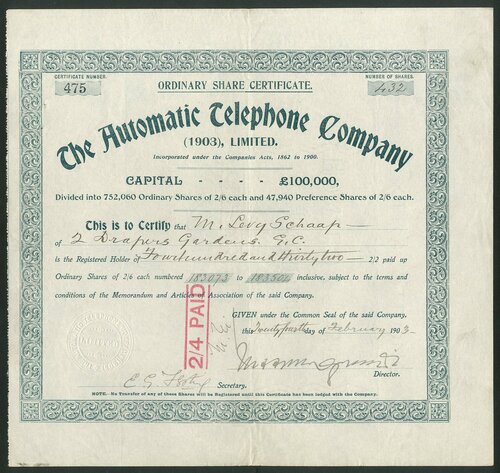 CERTIFICATE NUMBER.
475
ORDINARY SHARE CERTIFICATE.
NUMBER OF SHARES.
432
The Automatic Telephone Company
(1903), LIMITED.
Incorporated under the Companies Acts, 1862 to 1900.
CAPITAL - - - - £100,000,
Divided into 752,060 Ordinary Shares of 2/6 each and 47,940 Preference Shares of 2/6 each.
This is to Certify that M. Levy Schaap
of 2 Drapers Gardens. E.C.
is the Registered Holder of Four hundred and thirty two 2/2 paid up
Ordinary Shares of 2/6 each numbered 183073 to 183504 inclusive, subject to the terms and
conditions of the Memorandum and Articles of Association of the said Company.
2/4 PAID
GIVEN under the Common Seal of the said Company,
this Twenty fourth day of February 1903
Director.
Secretary.
NOTE.—No Transfer of any of these Shares will be Registered until this Certificate has been lodged with the Company.